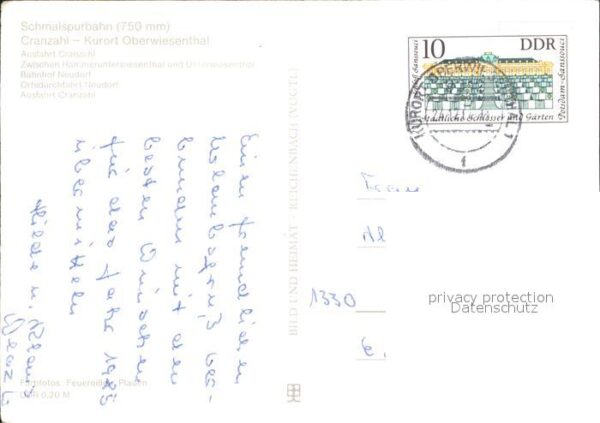 Schmalspurbahn (750 mm)
Cranzahl – Kurort Oberwiesenthal
Ausfahrt Cranzahl
Zwischen Hammerunterwiesenthal und Unterwiesenthal
Bahnhof Neudorf
Ortsdurchfahrt Neudorf
Ausfahrt Cranzahl
10 DDR
Potsdam-Sanssouci
Staatliche Schlösser und Gärten
KURORT OBERWIESENTHAL
1
Einen freundlichen
Urlaubsgruß ver-
binden mit den
besten Wünschen
für das Jahr 1985
übermitteln
Hilde u. Klaus
BILD UND HEIMAT · REICHENBACH (VOGTL)
Frau
Al
1330
E.
privacy protection
Datenschutz
Farbfotos: Feuereißen, Plauen
DDR 0,20 M